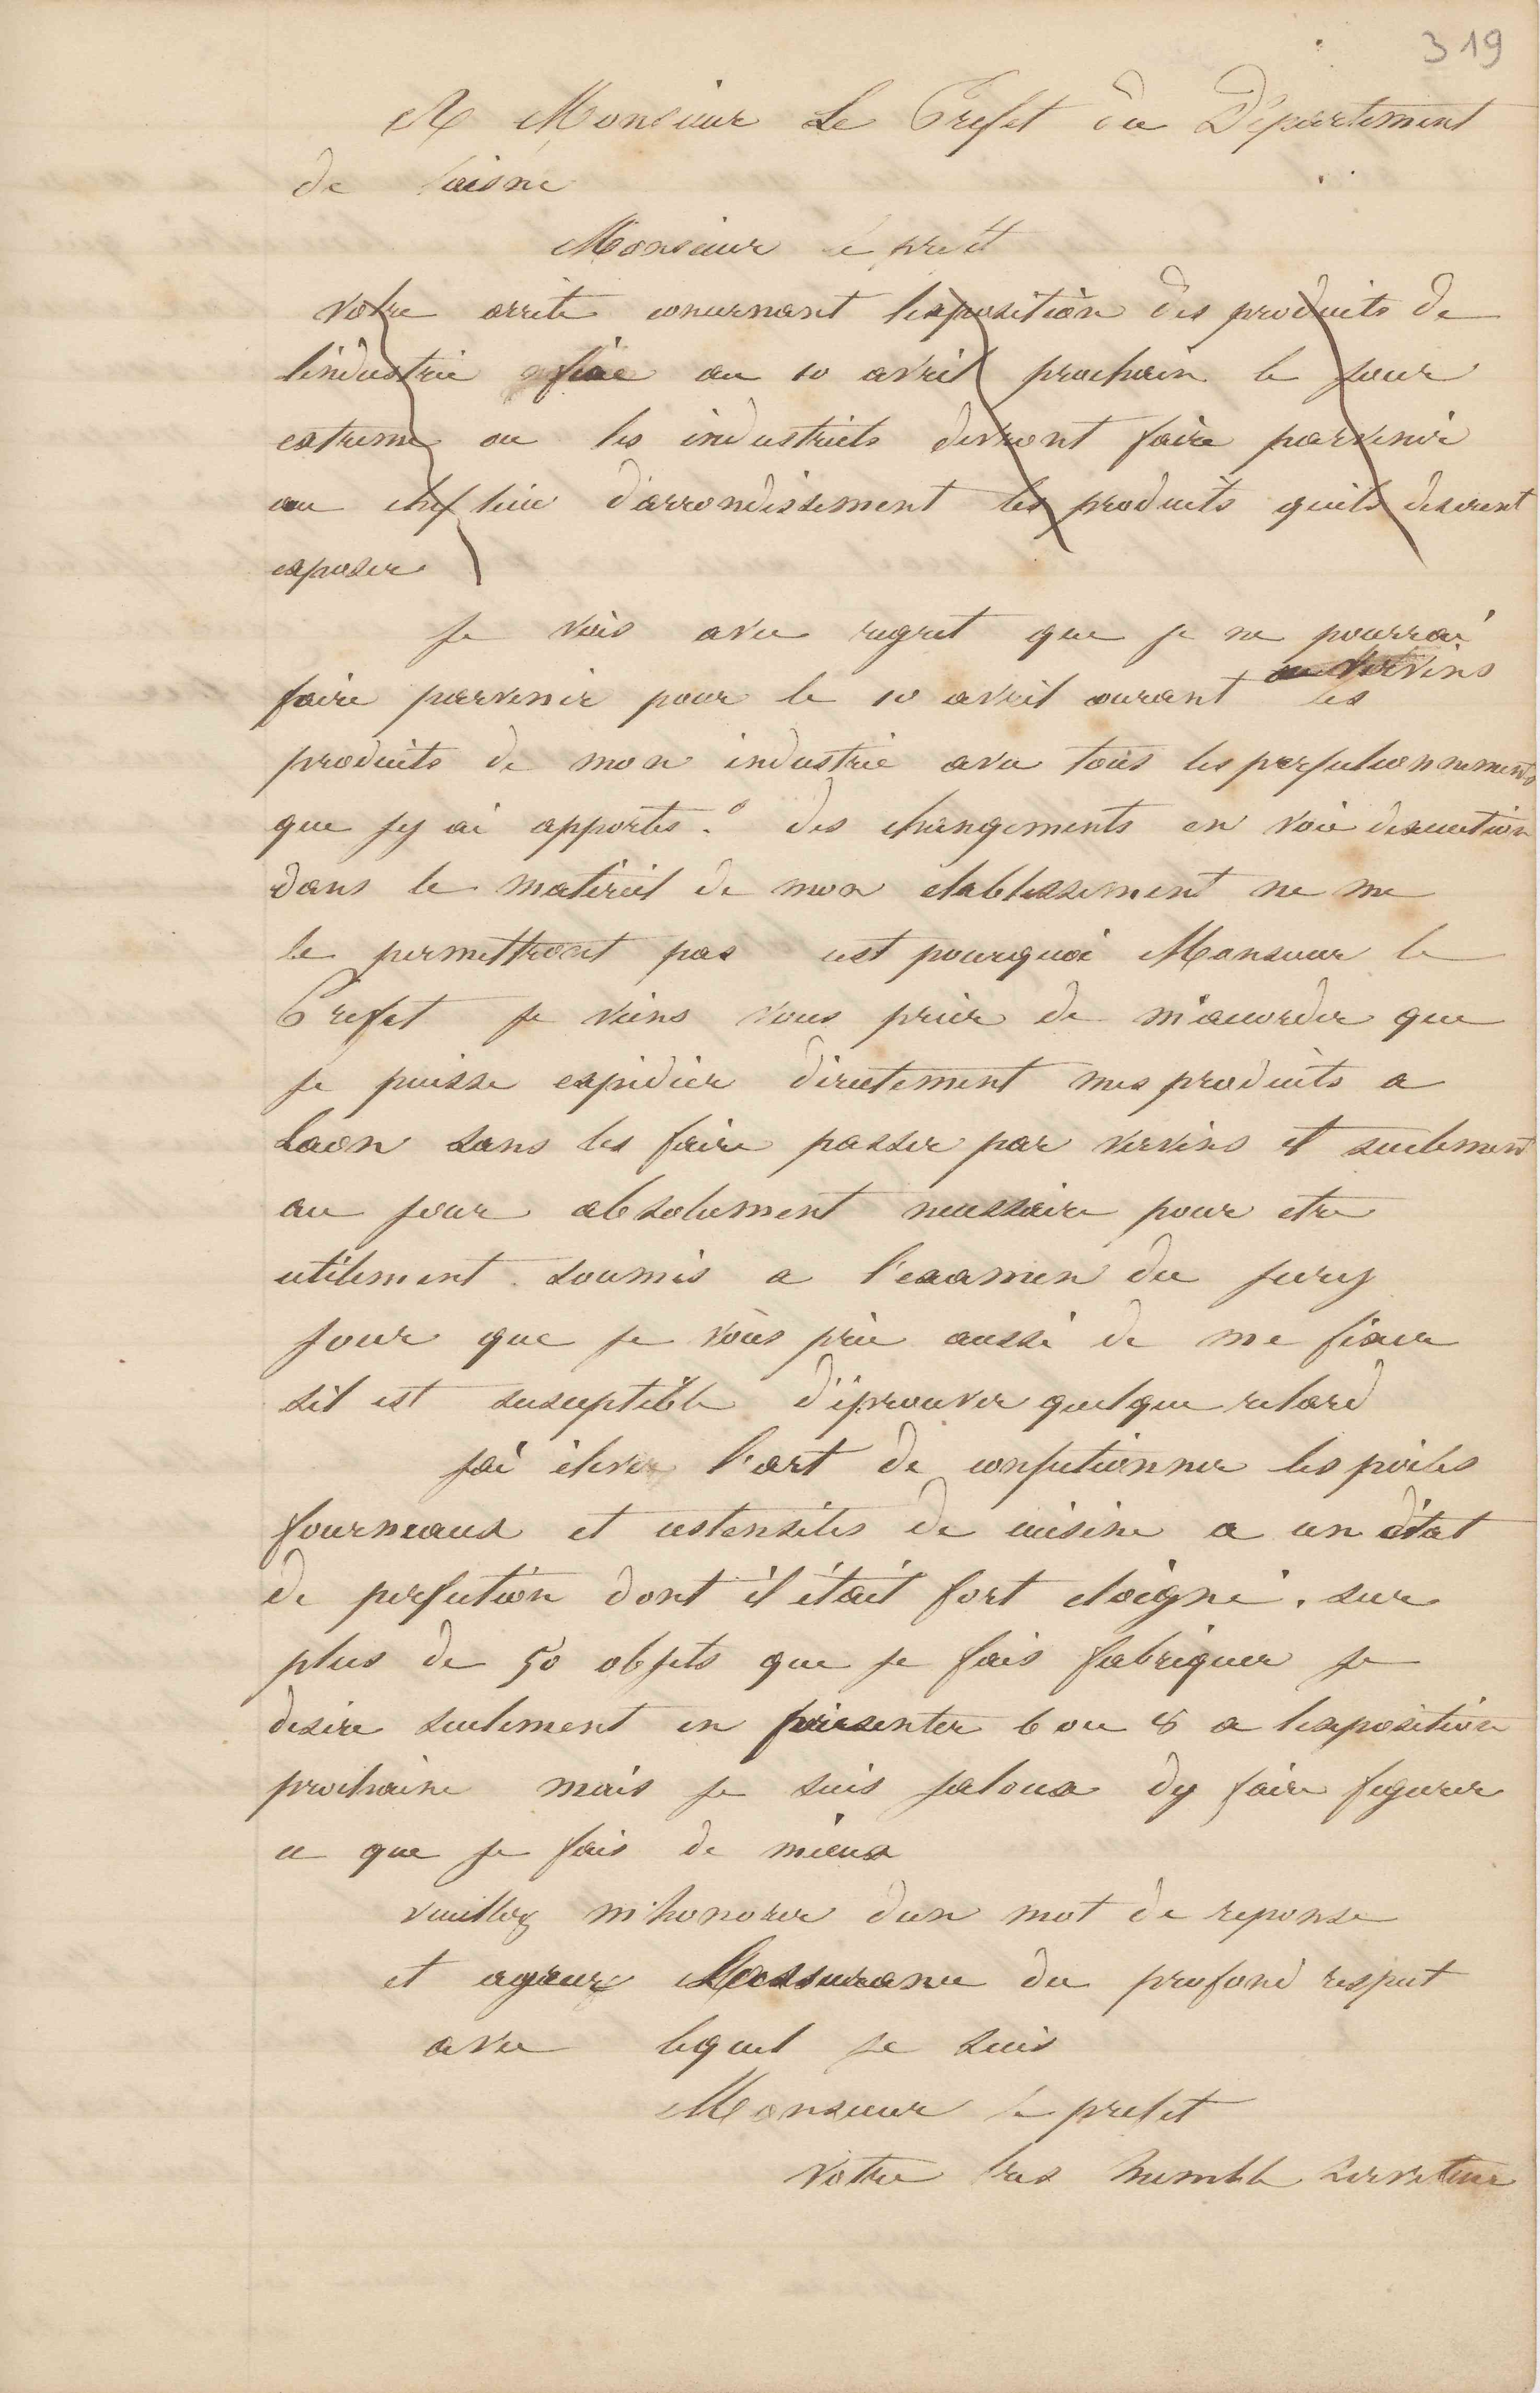 319
A Monsieur Le Prefet du Département
de laisne
Monsieur le prefet
votre arrete concernant lexposition des produits de
lindustrie fixe au 10 avril prochain le jour
extreme ou les industriels devront faire parvenir
au chef lieu d'arrondissement les produits quils desirent
exposer
Je vois avec regret que je ne pourrai
faire parvenir pour le 10 avril courant a vervins les
produits de mon industrie avec tous les perfectionnements
que jy ai apportes. des changements en voie dexecution
dans le materiel de mon etablissement ne me
le permettront pas cest pourquoi Monsieur le
Prefet je viens vous prier de m'accorder que
je puisse expedier directement mes produits a
Laon sans les faire passer par vervins et seulement
au jour absolument necessaire pour etre
utilement soumis a l'examen du jury
jour que je vous prie aussi de me fixer
sil est susceptible d'éprouver quelque retard
jai élevé l'art de confectionner les poeles
fourneaux et ustensiles de cuisine a un état
de perfection dont il était fort eloigné. sur
plus de 50 objets que je fais fabriquer je
desire seulement en présenter 6 ou 8 a lexposition
prochaine mais je suis jaloux dy faire figurer
ce que je fais de mieux
veuillez m'honorer dun mot de reponse
et agreez Lassurance du profond respect
avec lequel je suis
Monsieur le prefet
votre tres humble serviteur